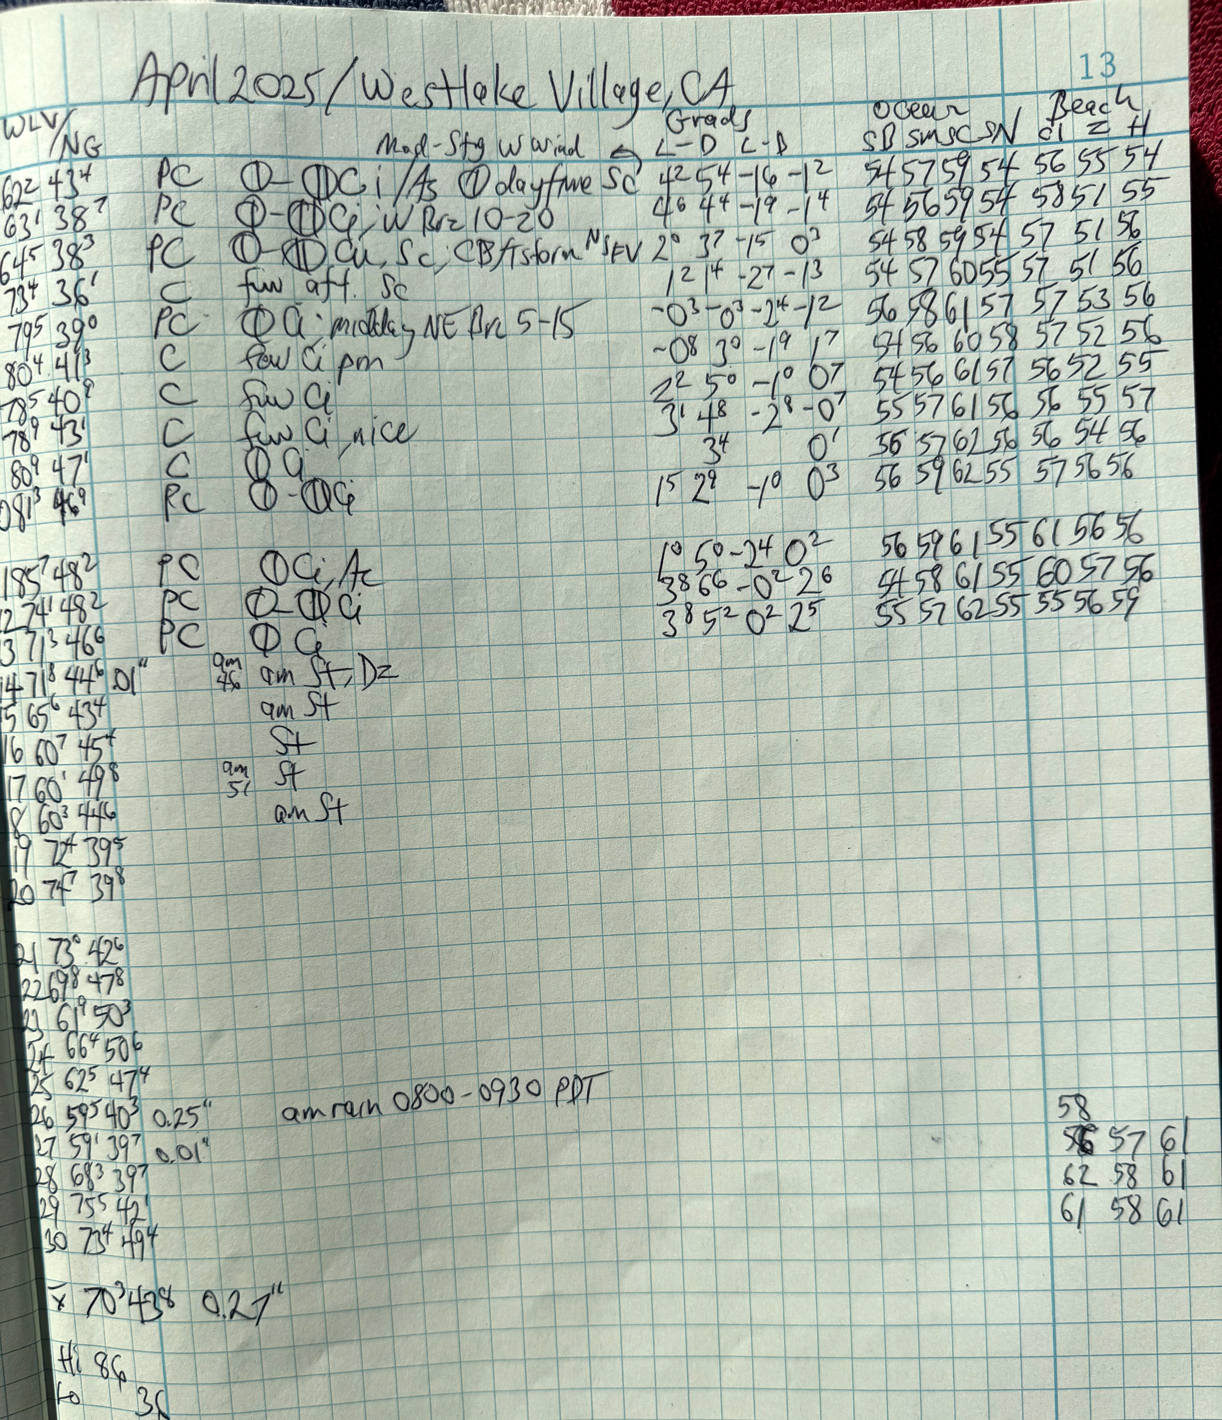 13
April 2025/Westlake Village, CA
WLV/NG Grads Ocean Beach
Mod-Stg W wind L-D L-D SB SM SC SN CI Z H
62² 43⁴ PC Ci/As day few Sc 4² 5⁴ -1⁶ -1² 54 57 59 54 56 55 54
63¹ 38⁷ PC Ci, W Brz 10-20 4⁶ 4⁴ -1⁹ -1⁴ 54 56 59 54 58 51 55
64⁵ 38³ PC Cu, Sc, CB/tstorm N SFV 2⁰ 3⁷ -1⁵ 0³ 54 58 59 54 57 51 56
73⁴ 36¹ C few aft. Sc 1² 1⁴ -2⁷ -1³ 54 57 60 55 57 51 56
79⁵ 39⁰ PC Ci midday NE Brz 5-15 -0³ -0³ -2⁴ -1² 56 58 61 57 57 53 56
80⁴ 41³ C few Ci pm -0⁸ 3⁰ -1⁹ 1⁷ 54 56 60 58 57 52 56
78⁵ 40⁹ C few Ci 2² 5⁰ -1⁰ 0⁷ 54 56 61 57 56 52 55
78⁹ 43¹ C few Ci, nice 3¹ 4⁸ -2⁸ -0⁷ 55 57 61 56 56 55 57
80⁹ 47¹ C Ci 3⁴ 0¹ 56 57 62 56 56 54 56
81³ 46⁹ PC Ci 1⁵ 2⁹ -1⁰ 0³ 56 59 62 55 57 56 56
85⁷ 48² PC Ci, Ac 1⁰ 5⁰ -2⁴ 0² 56 59 61 55 61 56 56
12 74¹ 48² PC Ci 3⁸ 6⁶ -0² 2⁶ 54 58 61 55 60 57 56
13 71³ 46⁶ PC Ci 3⁸ 5² 0² 2⁵ 55 57 62 55 55 56 59
14 71⁸ 44⁶ .01" am 46 am St, Dz
15 65⁶ 43⁴ am St
16 60⁷ 45⁴ St
17 60¹ 49⁸ am 51 St
18 60³ 44⁶ am St
19 72⁴ 39⁵
20 74⁷ 39⁸
21 73⁰ 42⁶
22 69⁸ 47⁸
23 61⁹ 50³
24 66⁴ 50⁶
25 62⁵ 47⁴
26 59⁵ 40³ 0.25" am rain 0800-0930 PDT 58
27 59¹ 39⁷ 0.01" 56 57 61
28 68³ 39⁷ 62 58 61
29 75⁵ 42¹ 61 58 61
30 73⁴ 49⁴
x̄ 70³ 43⁸ 0.27"
Hi 86
Lo 36